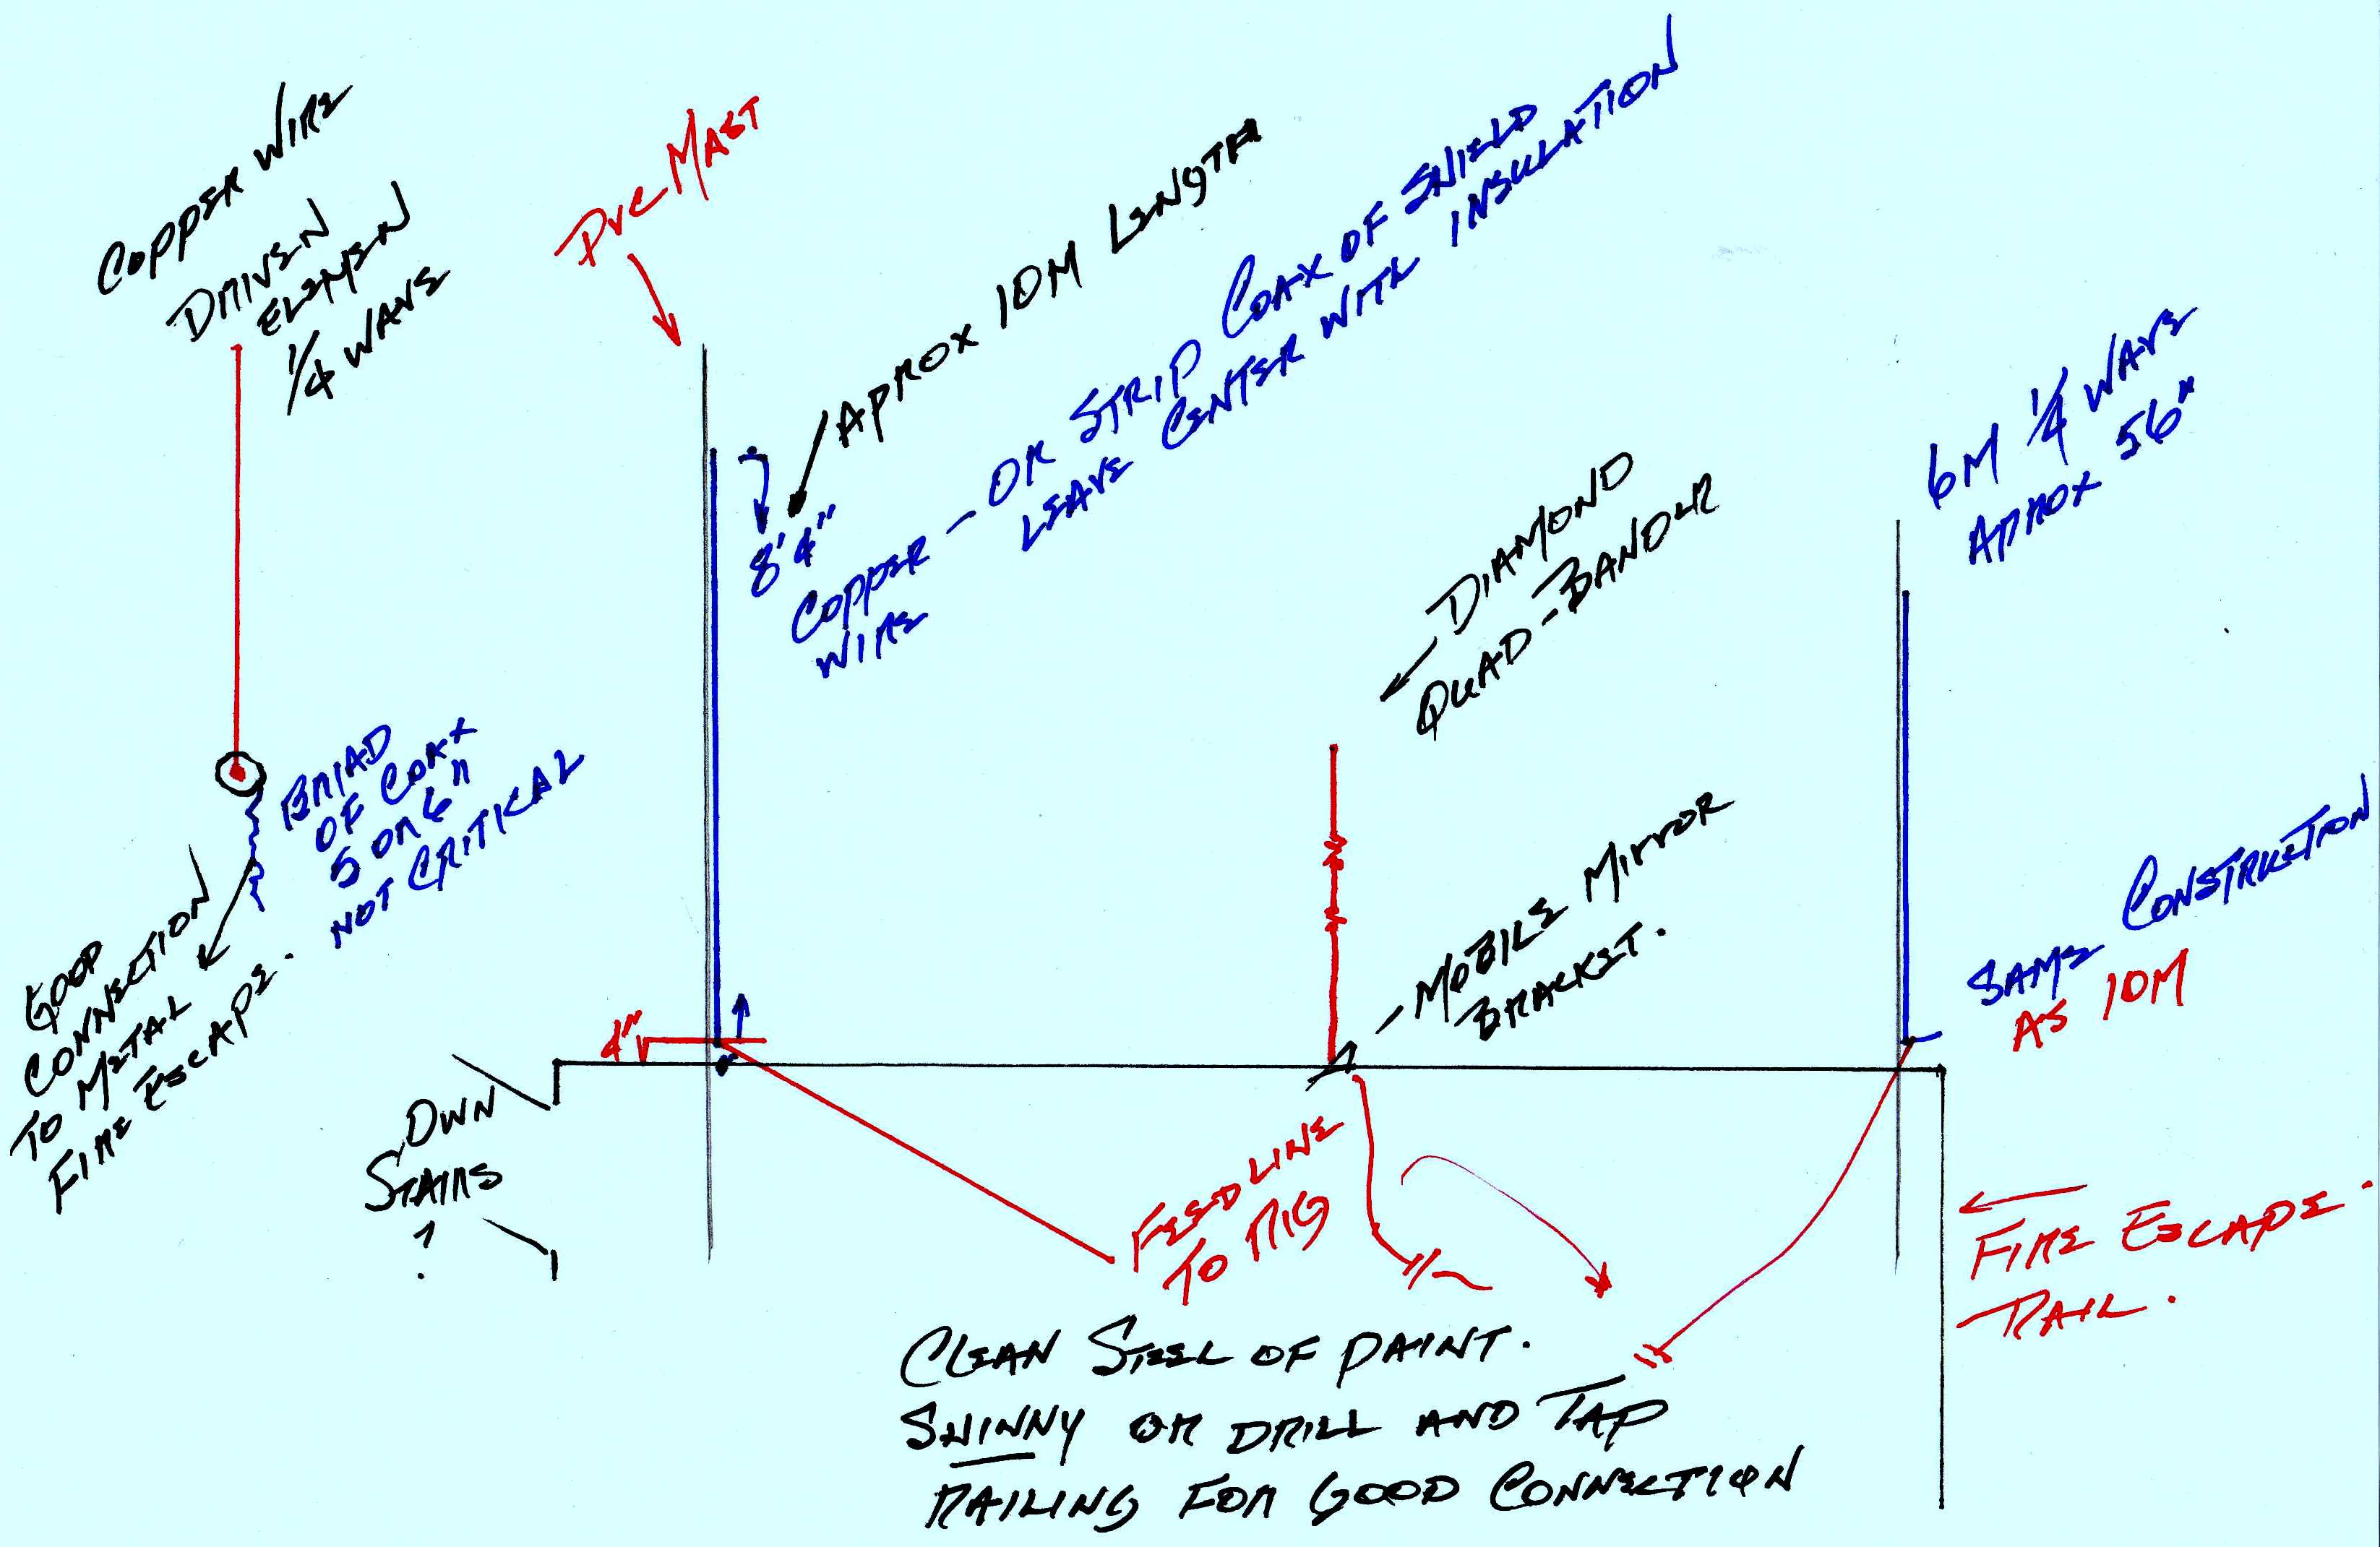 COPPER WIRE
DRIVEN
ELEMEN
1/4 WAVE
PVC MAST
APROX 10M LENGTH
8'4"
COPPER - OR STRIP COAX OF SHIELD
WIRE LEAVE CENTER WITH INSULATION
DIAMOND
QUAD-BANDER
6M 1/4 WAVE
APROX 56"
BRIAD
OF COAX
5 OR 6"
NOT CRITICAL
GOOD
CONNECTION
TO METAL
FIRE ESCAPE.
MOBILE MIRROR
BRACKET.
SAME CONSTRUCTION
AS 10M
4"
DWN
STAIRS
?
FEEDLINE
TO RIG
FIRE ESCAPE.
RAIL.
CLEAN STEEL OF PAINT.
SHINNY OR DRILL AND TAP
RAILING FOR GOOD CONNECTION